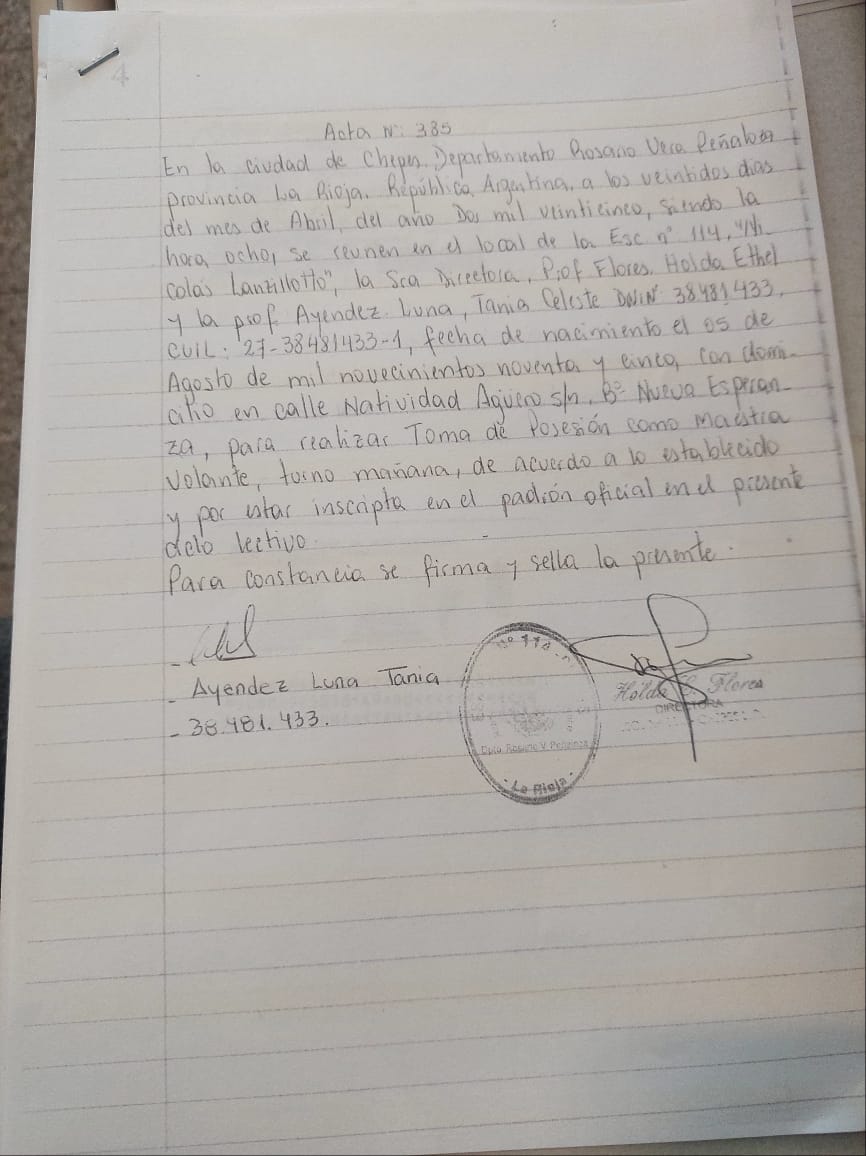 4
Acta N: 385
En la ciudad de Chepes, Departamento Rosario Vera Peñaloza
provincia La Rioja. República Argentina, a los veintidos dias
del mes de Abril, del año Dos mil veinticinco, siendo la
hora, ocho, se reunen en el local de la Esc n° 114, "Ni-
colás Lanzillotto", la Sra Directora, Prof Flores, Holda Ethel
y la prof. Ayendez Luna, Tania Celeste DNI N° 38481433,
CUIL: 27-38481433-1, fecha de nacimiento el 05 de
Agosto de mil novecinientos noventa y cinco, con domi-
cilio en calle Natividad Agüero s/n, B° Nueva Esperan-
za, para realizar Toma de Posesión como Maestra
Volante, turno mañana, de acuerdo a lo establecido
y por estar inscripta en el padrón oficial en el presente
ciclo lectivo.
Para constancia se firma y sella la presente.
- Ayendez Luna Tania
- 38.481.433.
N° 114
Dpto Rosario V. Peñaloza
- La Rioja -
Holda E. Flores
DIRECTORA